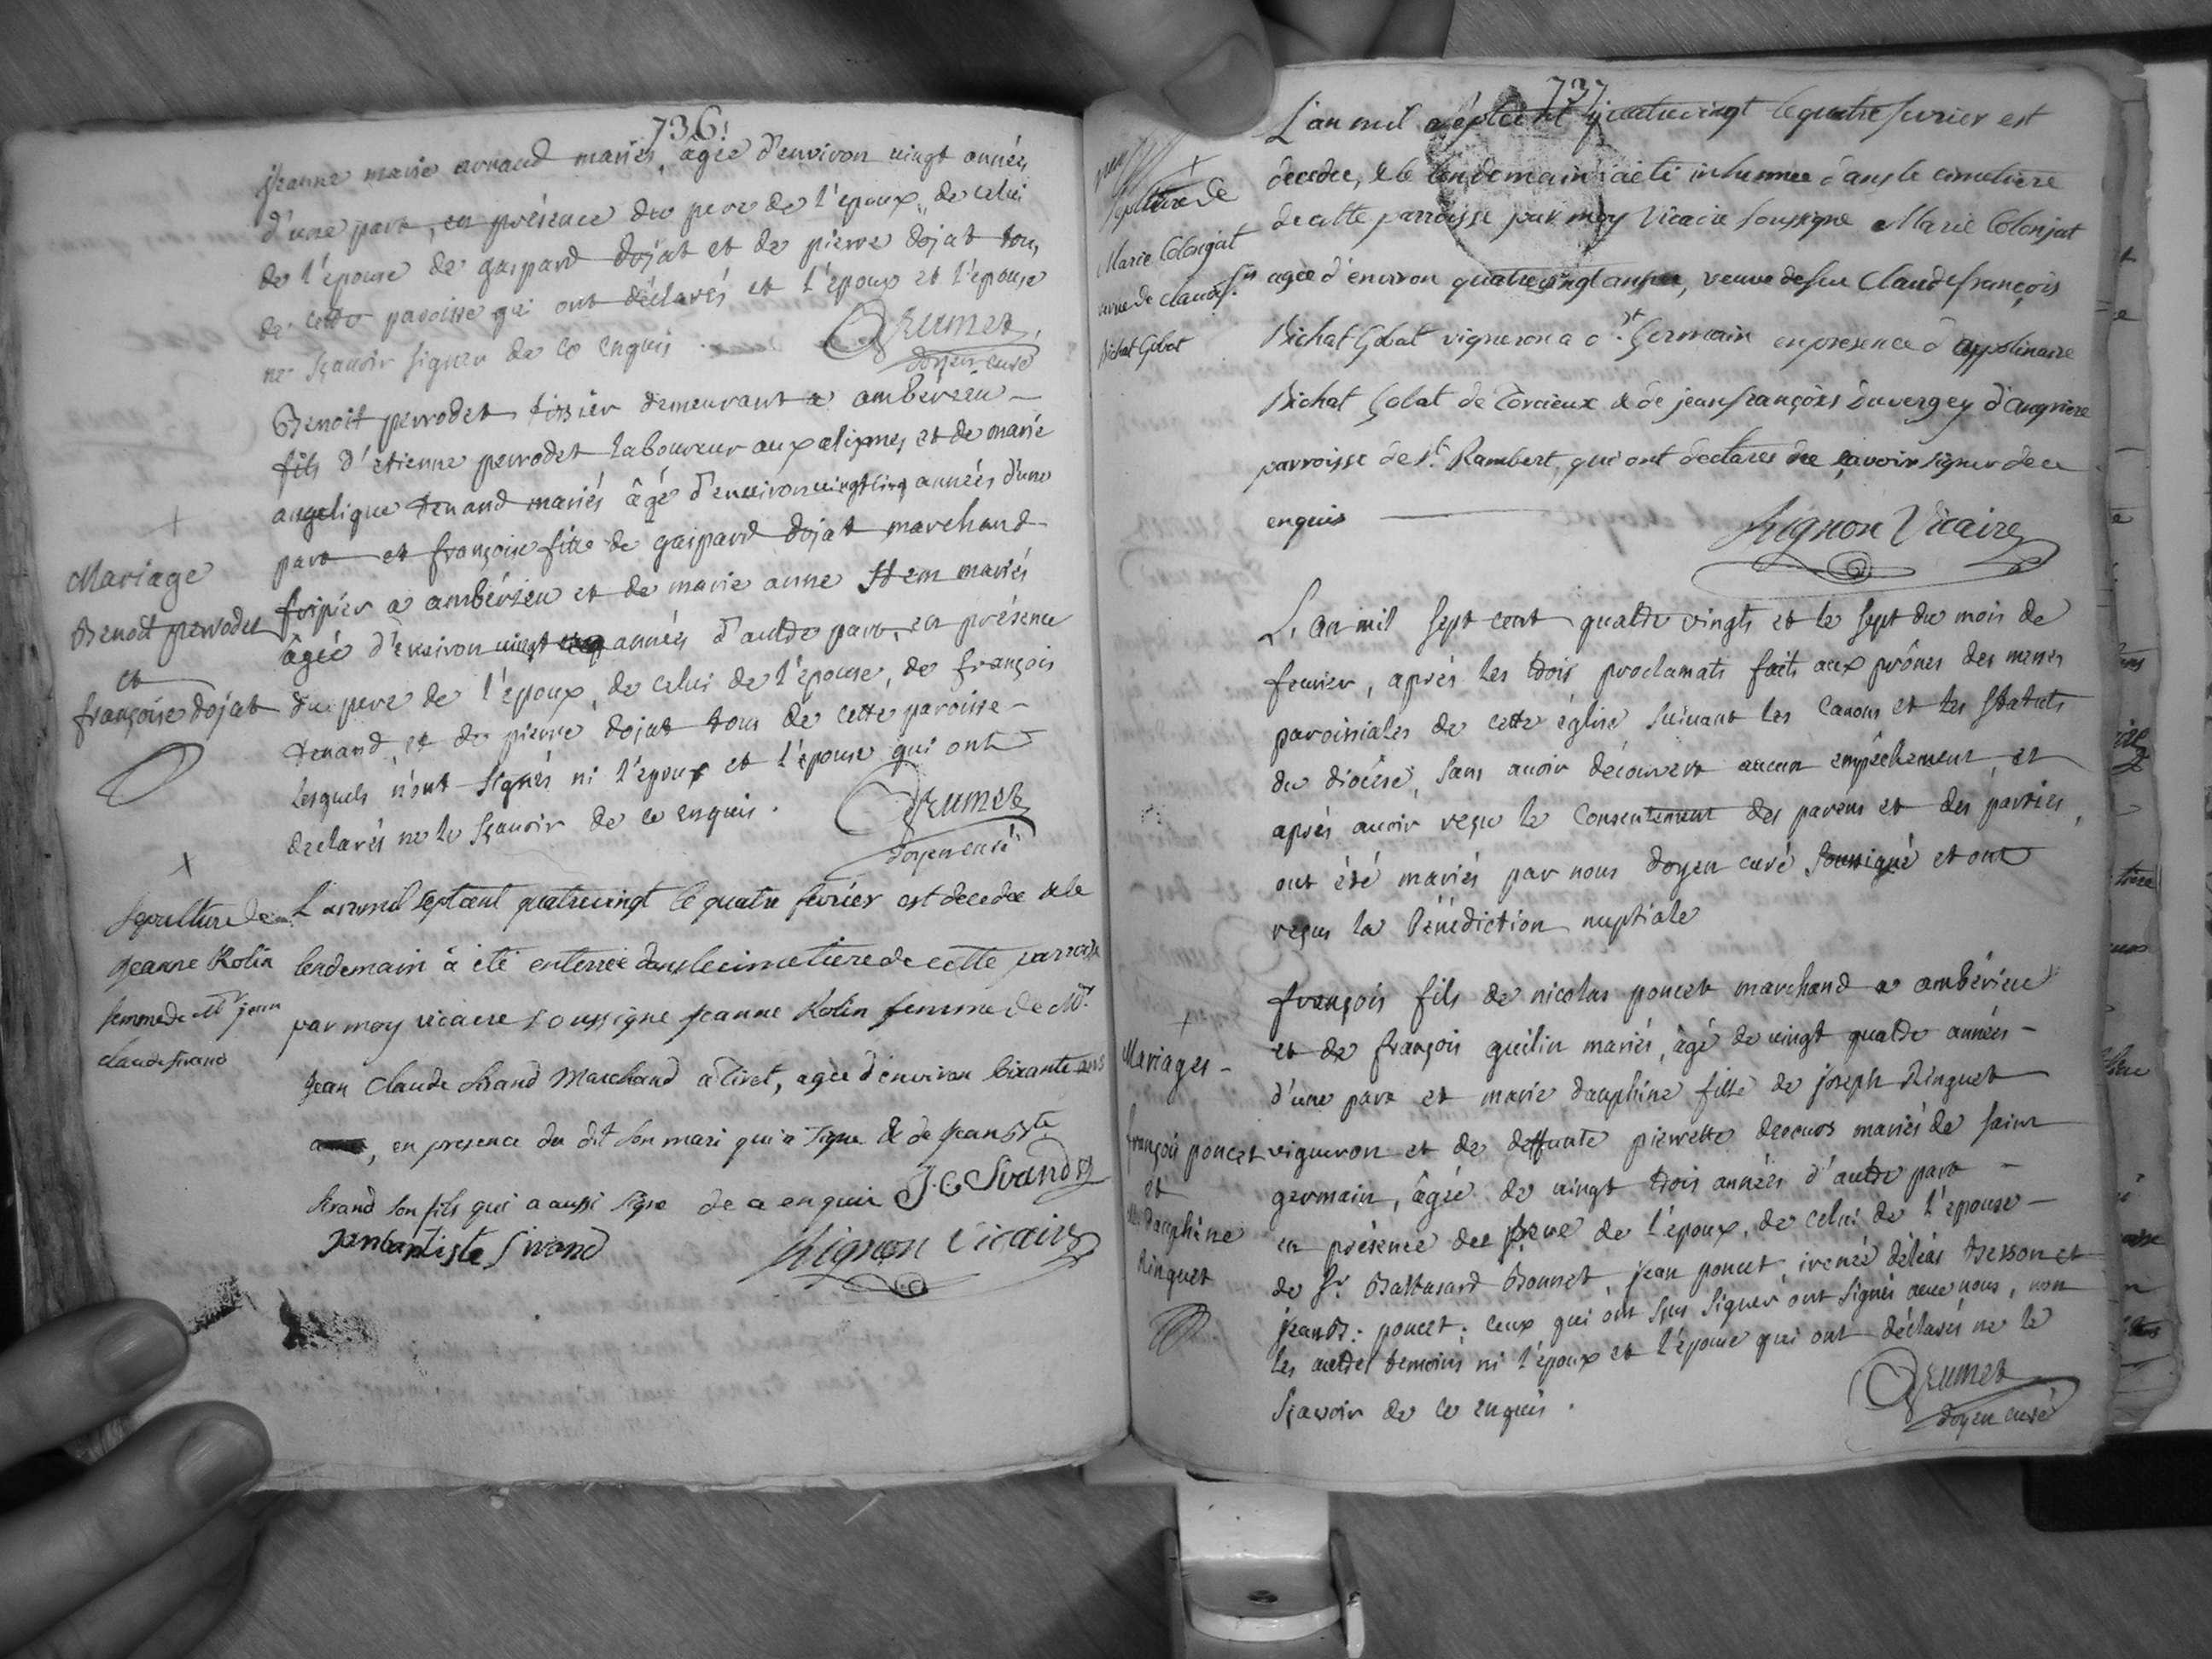 736.
jeanne marie arnaud mariés, âgée d'environ vingt années
d'une part, en présence du pere de l'époux, de celui
de l'épouse de gaspard dojat et de pierre dojat tous
de cette paroisse qui ont déclarés et l'époux et l'épouse
ne sçavoir signer de ce enquis.
doyen curé
Benoit perrodet tissier demeurant a ambérieu
fils d'etienne perrodet laboureur aux alismes et de marie
angelique tenand mariés âgé d'environ vingt cinq années d'une
part et françoise fille de gaspard dojat marchand
fripier a ambérieu et de marie anne mariés
âgée d'environ vingt années d'autre part, en présence
du pere de l'époux, de celui de l'épouse, de françois
tenand et de pierre dojat tous de cette paroisse
lesquels n'ont signés ni l'epoux et l'épouse qui ont
declarés ne le sçavoir de ce enquis.
doyen curé
Mariage
Benoit perrodet
et
françoise dojat
L'an mil sept cent quatre vingt le quatre fevrier est decedée & le
lendemain à été enterrée dans le cimetiere de cette parroisse
par moy vicaire soussigne jeanne Rolin femme de Mr.
jean Claude Sirand Marchand à tiret, agée d'environ soixante ans
, en presence du dit son mari qui a signe & de jean bste
Sirand son fils qui a aussi signe de ce enquis J. C Sirand
jean baptiste Sirand
Vicaire
Sepulture de
jeanne Rolin
femme de Mr jean
claude sirand
737
L'an mil sept cent quatre vingt le quatre fevrier est
decedée, & le lendemain a été inhumée dans le cimetiere
de cette parroisse par moy Vicaire soussigne Marie Colonjat
agée d'environ quatre vingt années, veuve de feu Claude françois
Bichat Gobat vigneron a st. Germain en presence d'appolinaire
Bichat Gobat de Torcieux & de jean françois Duvergey d'angriere
parroisse de st. Rambert, qui ont declarés ne sçavoir signer de ce
enquis
Vicaire
Sepulture de
Marie Colonjat
veuve de claude f.
Bichat Gobat
L'an mil sept cent quatre vingts et le sept du mois de
fevrier, après les trois proclamats faits aux prônes des messes
paroissiales de cette église, suivant les Canons et les Statuts
du diocèse, sans avoir découvert aucun empêchement, et
après avoir reçu le Consentement des parens et des parties,
ont été mariés par nous doyen curé soussigné et ont
reçus la Bénédiction nuptiale
françois fils de nicolas poncet marchand a ambérieu
et de françois guélin mariés, âgé de vingt quatre années
d'une part et marie dauphine fille de joseph Ringuet
vigneron et de deffunte pierrette mariés de saint
germain, âgée de vingt trois années d'autre part
en présence du pere de l'époux, de celui de l'épouse
de Sr. Baltasard Bonnet, jean poncet, irenée Besson et
jean B: poncet; ceux qui ont sçus signer ont signés avec nous, non
les autres temoins ni l'époux et l'épouse qui ont déclarés ne le
Sçavoir de ce enquis.
doyen curé
Mariages
françois poncet
et
dauphine
Ringuet